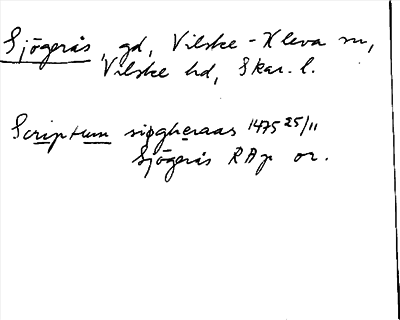 Sjögerås, gd, Vilske-Kleva sn,
Vilske hd, Skar. l.
Scriptum siøgheraas 1475 25/11
Sjögerås RAp or.